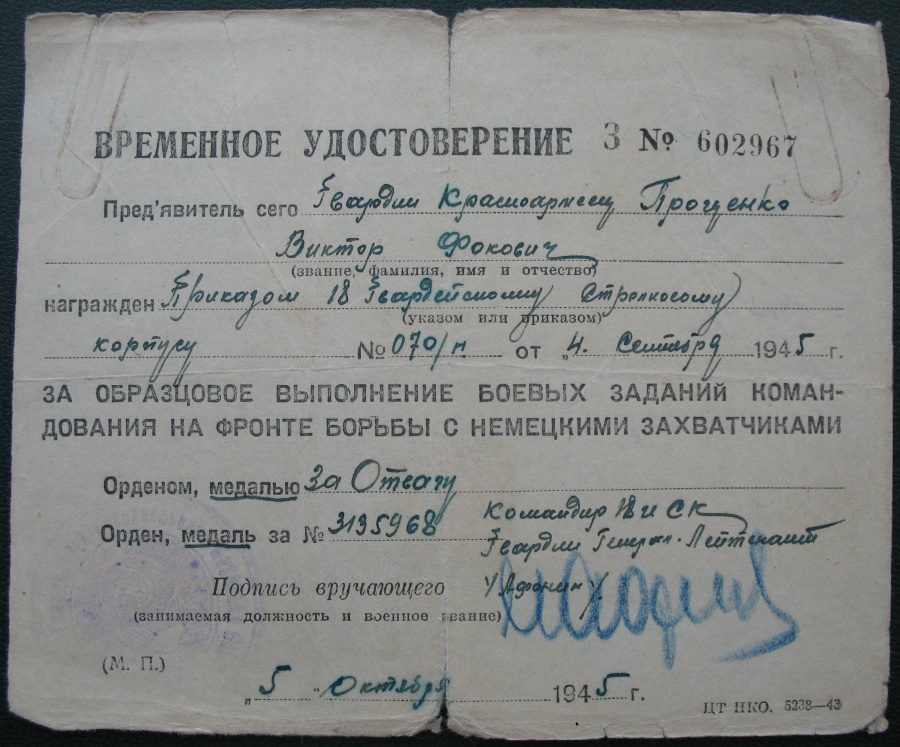 ВРЕМЕННОЕ УДОСТОВЕРЕНИЕ З № 602967
Пред'явитель сего Гвардии Красноармеец Прощенко
Виктор Фокович
(звание, фамилия, имя и отчество)
награжден Приказом 18 Гвардейскому Стрелковому
(указом или приказом)
корпусу № 070/н от „4. Сентябр 1945 г.
ЗА ОБРАЗЦОВОЕ ВЫПОЛНЕНИЕ БОЕВЫХ ЗАДАНИЙ КОМАН-
ДОВАНИЯ НА ФРОНТЕ БОРЬБЫ С НЕМЕЦКИМИ ЗАХВАТЧИКАМИ
Орденом, медалью За Отвагу
Орден, медаль за № 3135968
Командир 18 СК
Гвардии Генерал-Лейтенант
/Афонин/
Подпись вручающего
(занимаемая должность и военное звание)
(М. П.)
„5" Октября 1945 г.
ЦТ НКО. 5238—43